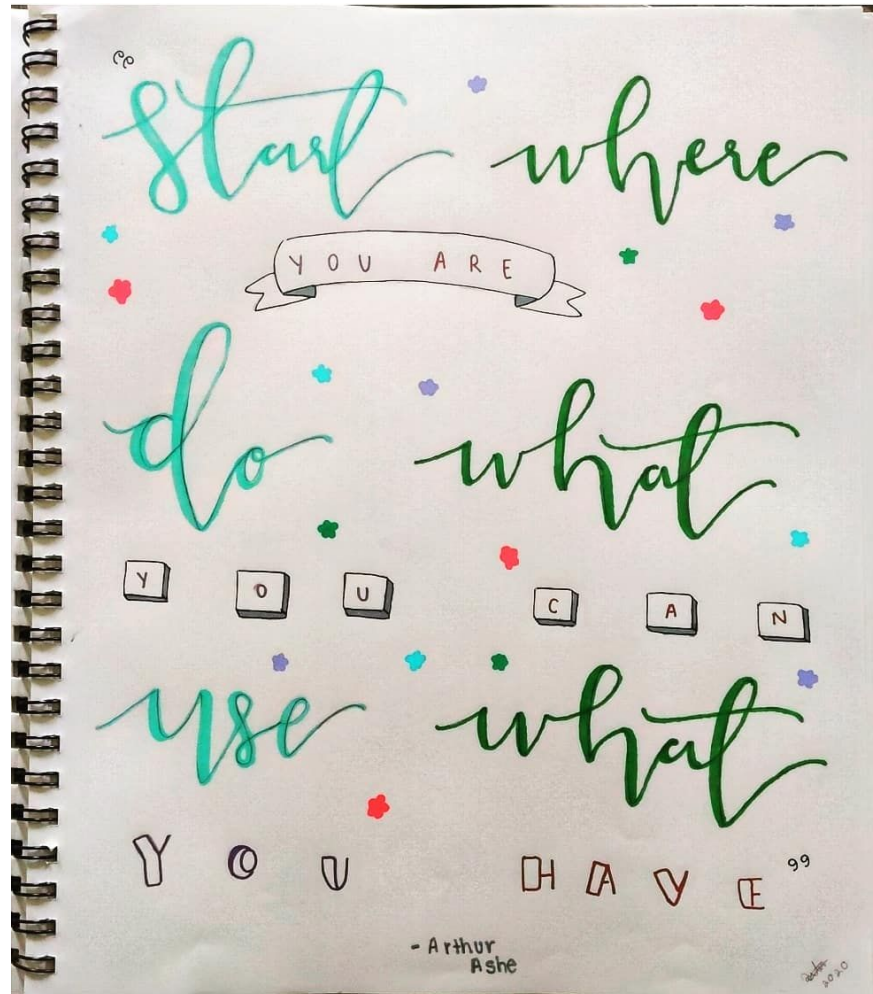 “start where
YOU ARE
do what
YOU CAN
use what
YOU HAVE”
- Arthur
Ashe
2020